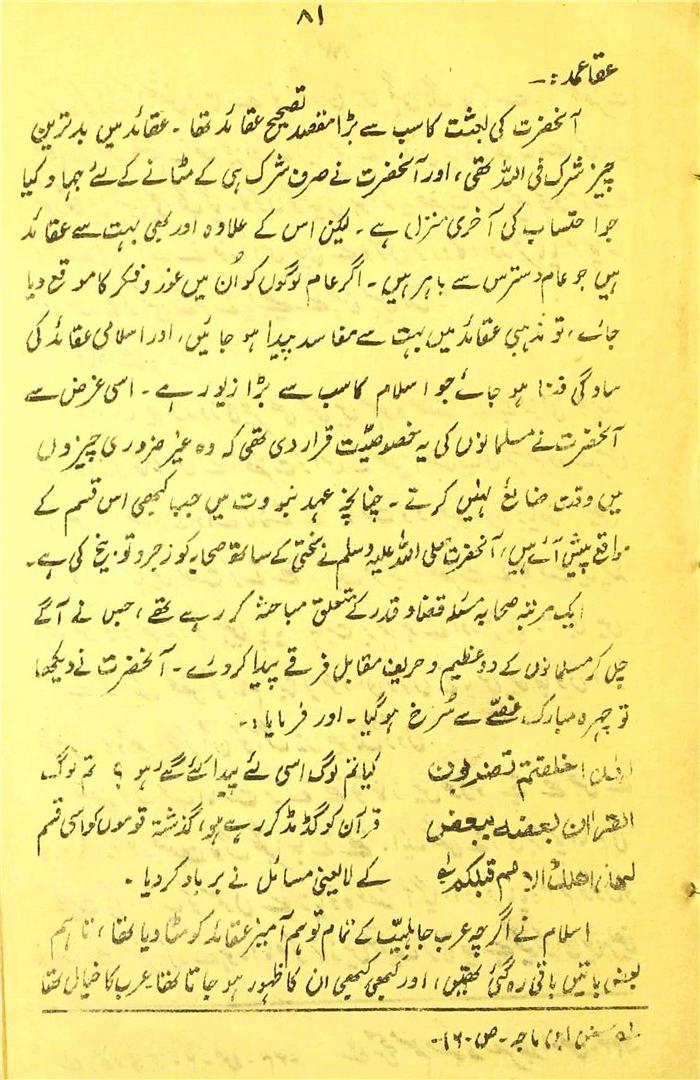 ۸۱
عقائد :۔
آنحضرت کی بعثت کا سب سے بڑا مقصد تصحیح عقائد تھا ۔ عقائد میں بدترین
چیز شرک فی اللہ تھی ، اور آنحضرت نے صرف شرک ہی کے مٹانے کے لئے جہاد کیا
جو احتساب کی آخری منزل ہے ۔ لیکن اس کے علاوہ اور بھی بہت سے عقائد
ہیں جو عام دسترس سے باہر ہیں ۔ اگر عام لوگوں کو اُن میں غور و فکر کا موقع دیا
جائے ، تو مذہبی عقائد میں بہت سے مفاسد پیدا ہو جائیں ، اور اسلامی عقائد کی
سادگی فنا ہو جائے جو اسلام کا سب سے بڑا زیور ہے ۔ اسی غرض سے
آنحضرت نے مسلمانوں کی یہ خصوصیّت قرار دی تھی کہ وہ غیر ضروری چیزوں
میں وقت ضائع نہیں کرتے ۔ چنانچہ عہد نبوت میں جب کبھی اس قسم کے
واقعے پیش آئے ہیں ، آنحضرت صلی اللہ علیہ وسلم نے سختی کے ساتھ صحابہ کو زجر و توبیخ کی ہے ۔
ایک مرتبہ صحابہ مسئلہ قضا و قدر کے متعلق مباحثہ کر رہے تھے ، جس نے آگے
چل کر مسلمانوں کے دو عظیم و حریف مقابل فرقے پیدا کر دئے ۔ آنحضرت نے دیکھا
تو چہرہ مبارک غصّے سے سُرخ ہو گیا ۔ اور فرمایا :۔
خلقتم تضربون کیا تم لوگ اسی لئے پیدا کئے گئے ہو ؟ تم لوگ
القرآن بعضہ ببعض قرآن کو گڈ مڈ کر رہے ہو ، گذشتہ قوموں کو اسی قسم
بھذا ھلکت الامم قبلکم کے لایعنی مسائل نے برباد کر دیا ۔
اسلام نے اگرچہ عرب جاہلیّت کے تمام توہم آمیز عقائد کو مٹا دیا تھا ، تاہم
بعض باتیں باقی رہ گئی تھیں ، اور کبھی کبھی ان کا ظہور ہو جاتا تھا عرب کا خیال تھا
سنن ابن ماجہ ۔ ص ۔ ۱۶ ۔